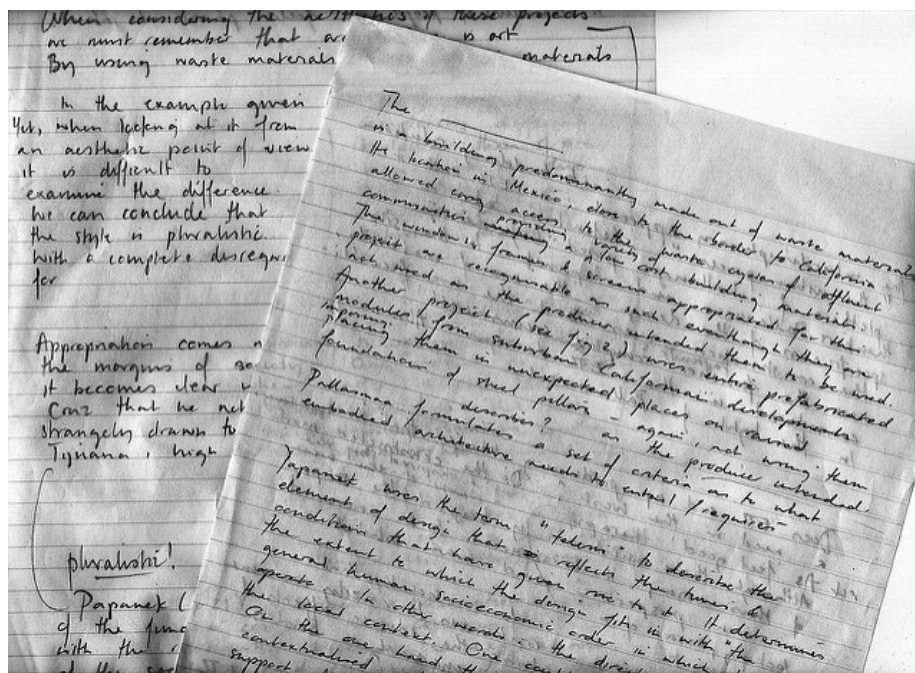 When considering the aesthetics of these projects
we must remember that is art
By using waste materials materials
In the example given
Yet, when looking at it from
an aesthetic point of view
it is difficult to
examine the difference.
We can conclude that
the style is pluralistic.
with a complete disregar
for
Appropriation comes
the margins of so
it becomes clear
Cruz that he not
strangely drawn to
Tijuana, high
pluralistic!
Papanek (
of the func
with the
The
is a building predominantly made out of waste material
Its location in Mexico, close to the border to California
allowed easy access to the waste cycle of affluent
communities providing a variety of low cost building materials.
The windows, frames & screens appropriated for this
project are recognisable as such eventhough they are
not used as the producer intended them to be used.
Another project (see fig 2) uses entire prefabricated
modules from suburban Californian developments
imposing
placing them in unexpected places on raised
foundations of steel pillars – again, not using them
as the producer intended.
Pallasmaa describes? formulates a set of criteria as to what
embodied architecture needs to entail / requires
Papanek uses the term "telesis" to describe the
element of design that reflects the times &
conditions that have given rise to it. It determines
the extent to which the design fits in with "the
general human socioeconomic order in which it
operate". In other words: the
the local context. One
On the one hand
contextualised
support